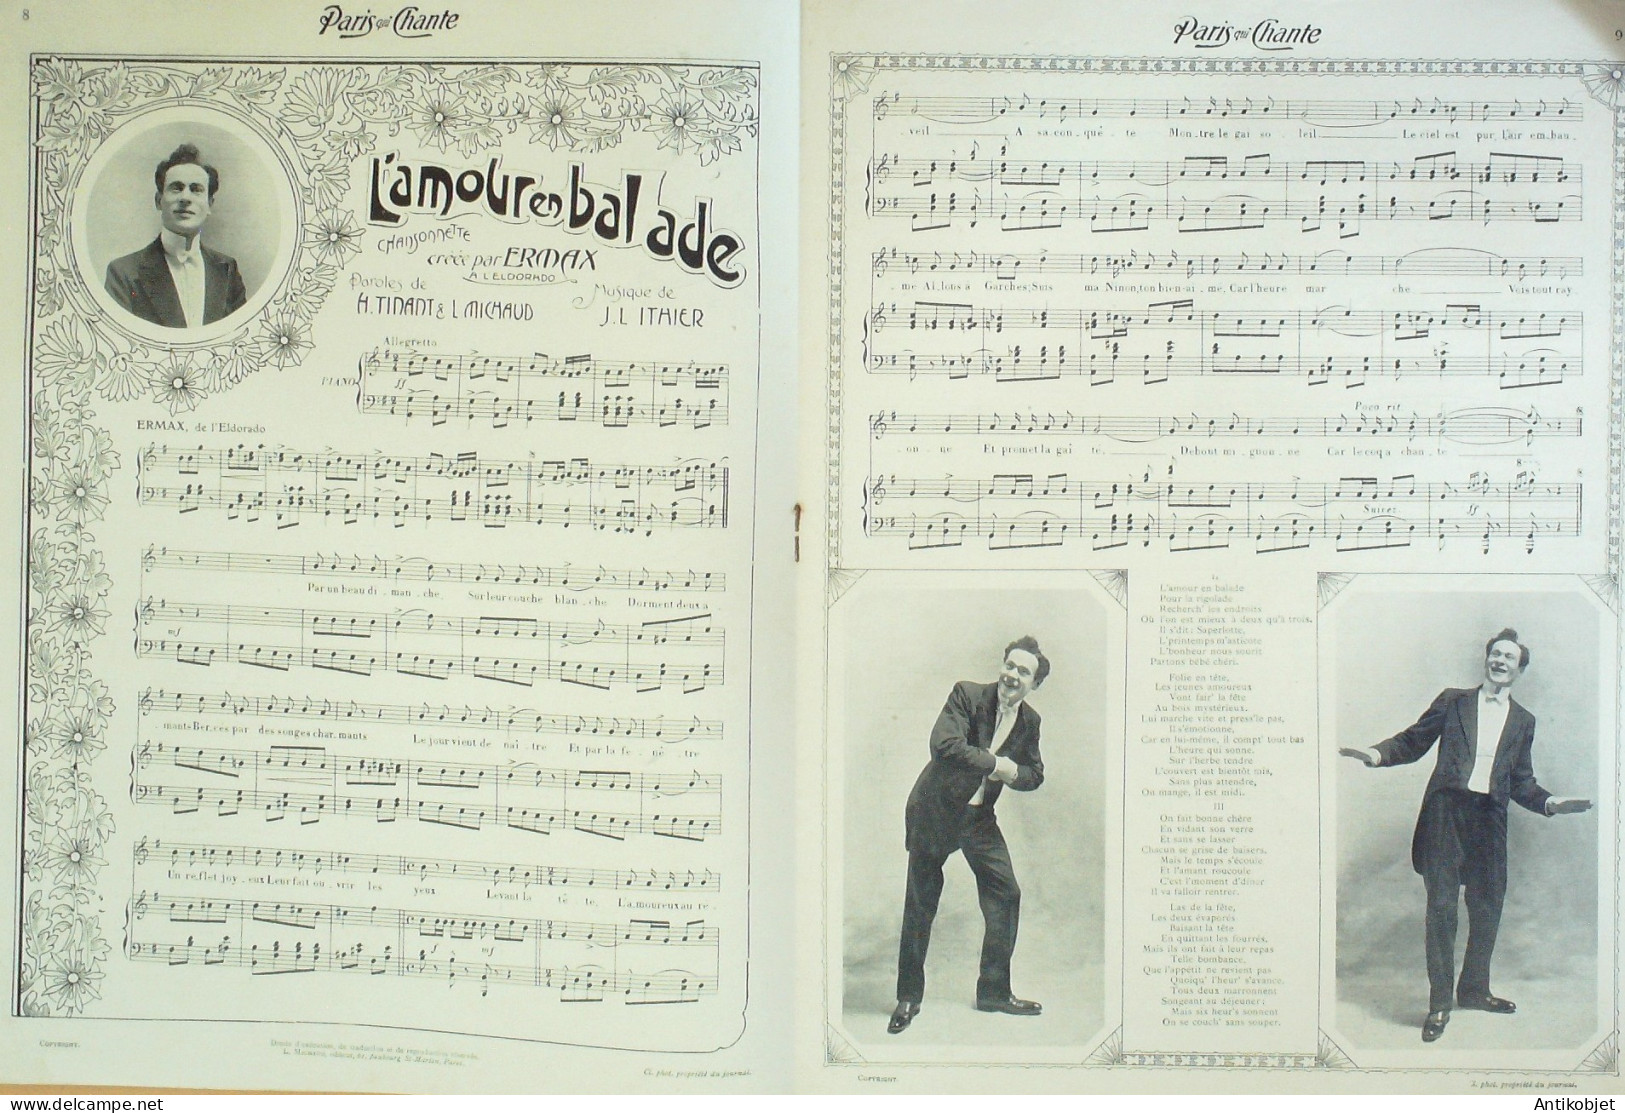 8
Paris qui Chante
L'amour en balade
CHANSONNETTE
créée par ERMAX
A L'ELDORADO
Paroles de
H. TINANT & L MICHAUD
Musique de
J. L ITHIER
Allegretto
PIANO
ff
ERMAX, de l'Eldorado
Par un beau di - man - che. Sur leur couche blan - che Dorment deux a -
mf
- mants Ber - cés par des songes char - mants Le jour vient de naî - tre Et par la fe - nê - tre
Un re - flet joy - eux Leur fait ou - vrir les yeux Levant la tê - te, L'a - moureux au ré -
f mf
COPYRIGHT.
Cl. phot. propriété du journal.
Paris qui Chante
9
- veil A sa con - quê - te Mon - tre le gai so - leil Le ciel est pur, L'air em - bau -
- me Al - lons à Garches; Suis ma Ninon, ton bien - ai - mé, Car l'heure mar - che Vois tout ray -
Poco rit
- on - ne Et promet la gai - té, Debout mi - gnon - ne Car le coq a chan - té
8
Suivez ff
II
L'amour en balade
Pour la rigolade
Recherch' les endroits
Où l'on est mieux à deux qu'à trois.
Il s'dit : Saperlotte,
L'printemps m'asticote
L'bonheur nous sourit
Partons bébé chéri.
Folie en tête,
Les jeunes amoureux
Vont fair' la fête
Au bois mystérieux.
Lui marche vite et press'le pas,
Il s'émotionne,
Car en lui-même, il compt' tout bas
L'heure qui sonne.
Sur l'herbe tendre
L'couvert est bientôt mis,
Sans plus attendre,
On mange, il est midi.
III
On fait bonne chère
En vidant son verre
Et sans se lasser
Chacun se grise de baisers.
Mais le temps s'écoule
Et l'amant roucoule
C'est l'moment d'dîner
Il va falloir rentrer.
Las de la fête,
Les deux évaporés
Baisant la tête
En quittant les fourrés,
Mais ils ont fait à leur repas
Telle bombance,
Que l'appétit ne revient pas
Quoiqu' l'heur' s'avance.
Tous deux marronnent
Songeant au déjeuner ;
Mais six heur's sonnent
On se couch' sans souper.
COPYRIGHT.
phot. propriété du journal.
Antikobjet